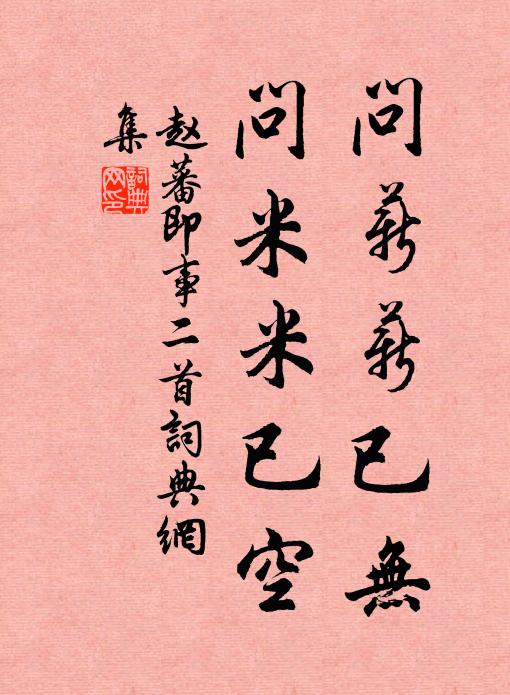 問薪薪已無
問米米已空
赵蕃即事二首詞典網
集
詞典
网印